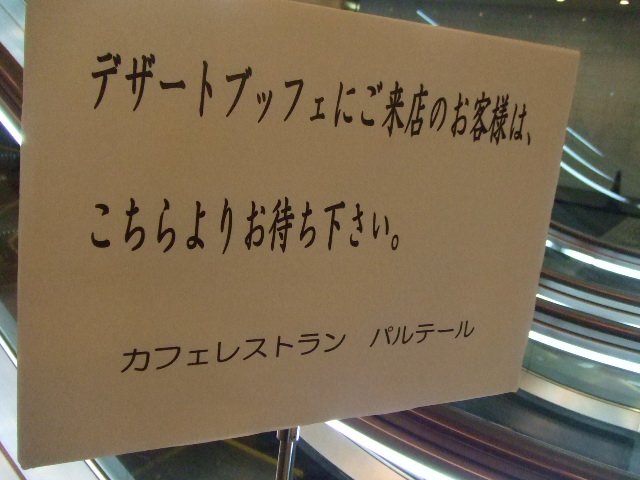 デザートブッフェにご来店のお客様は、
こちらよりお待ち下さい。
カフェレストラン パルテール